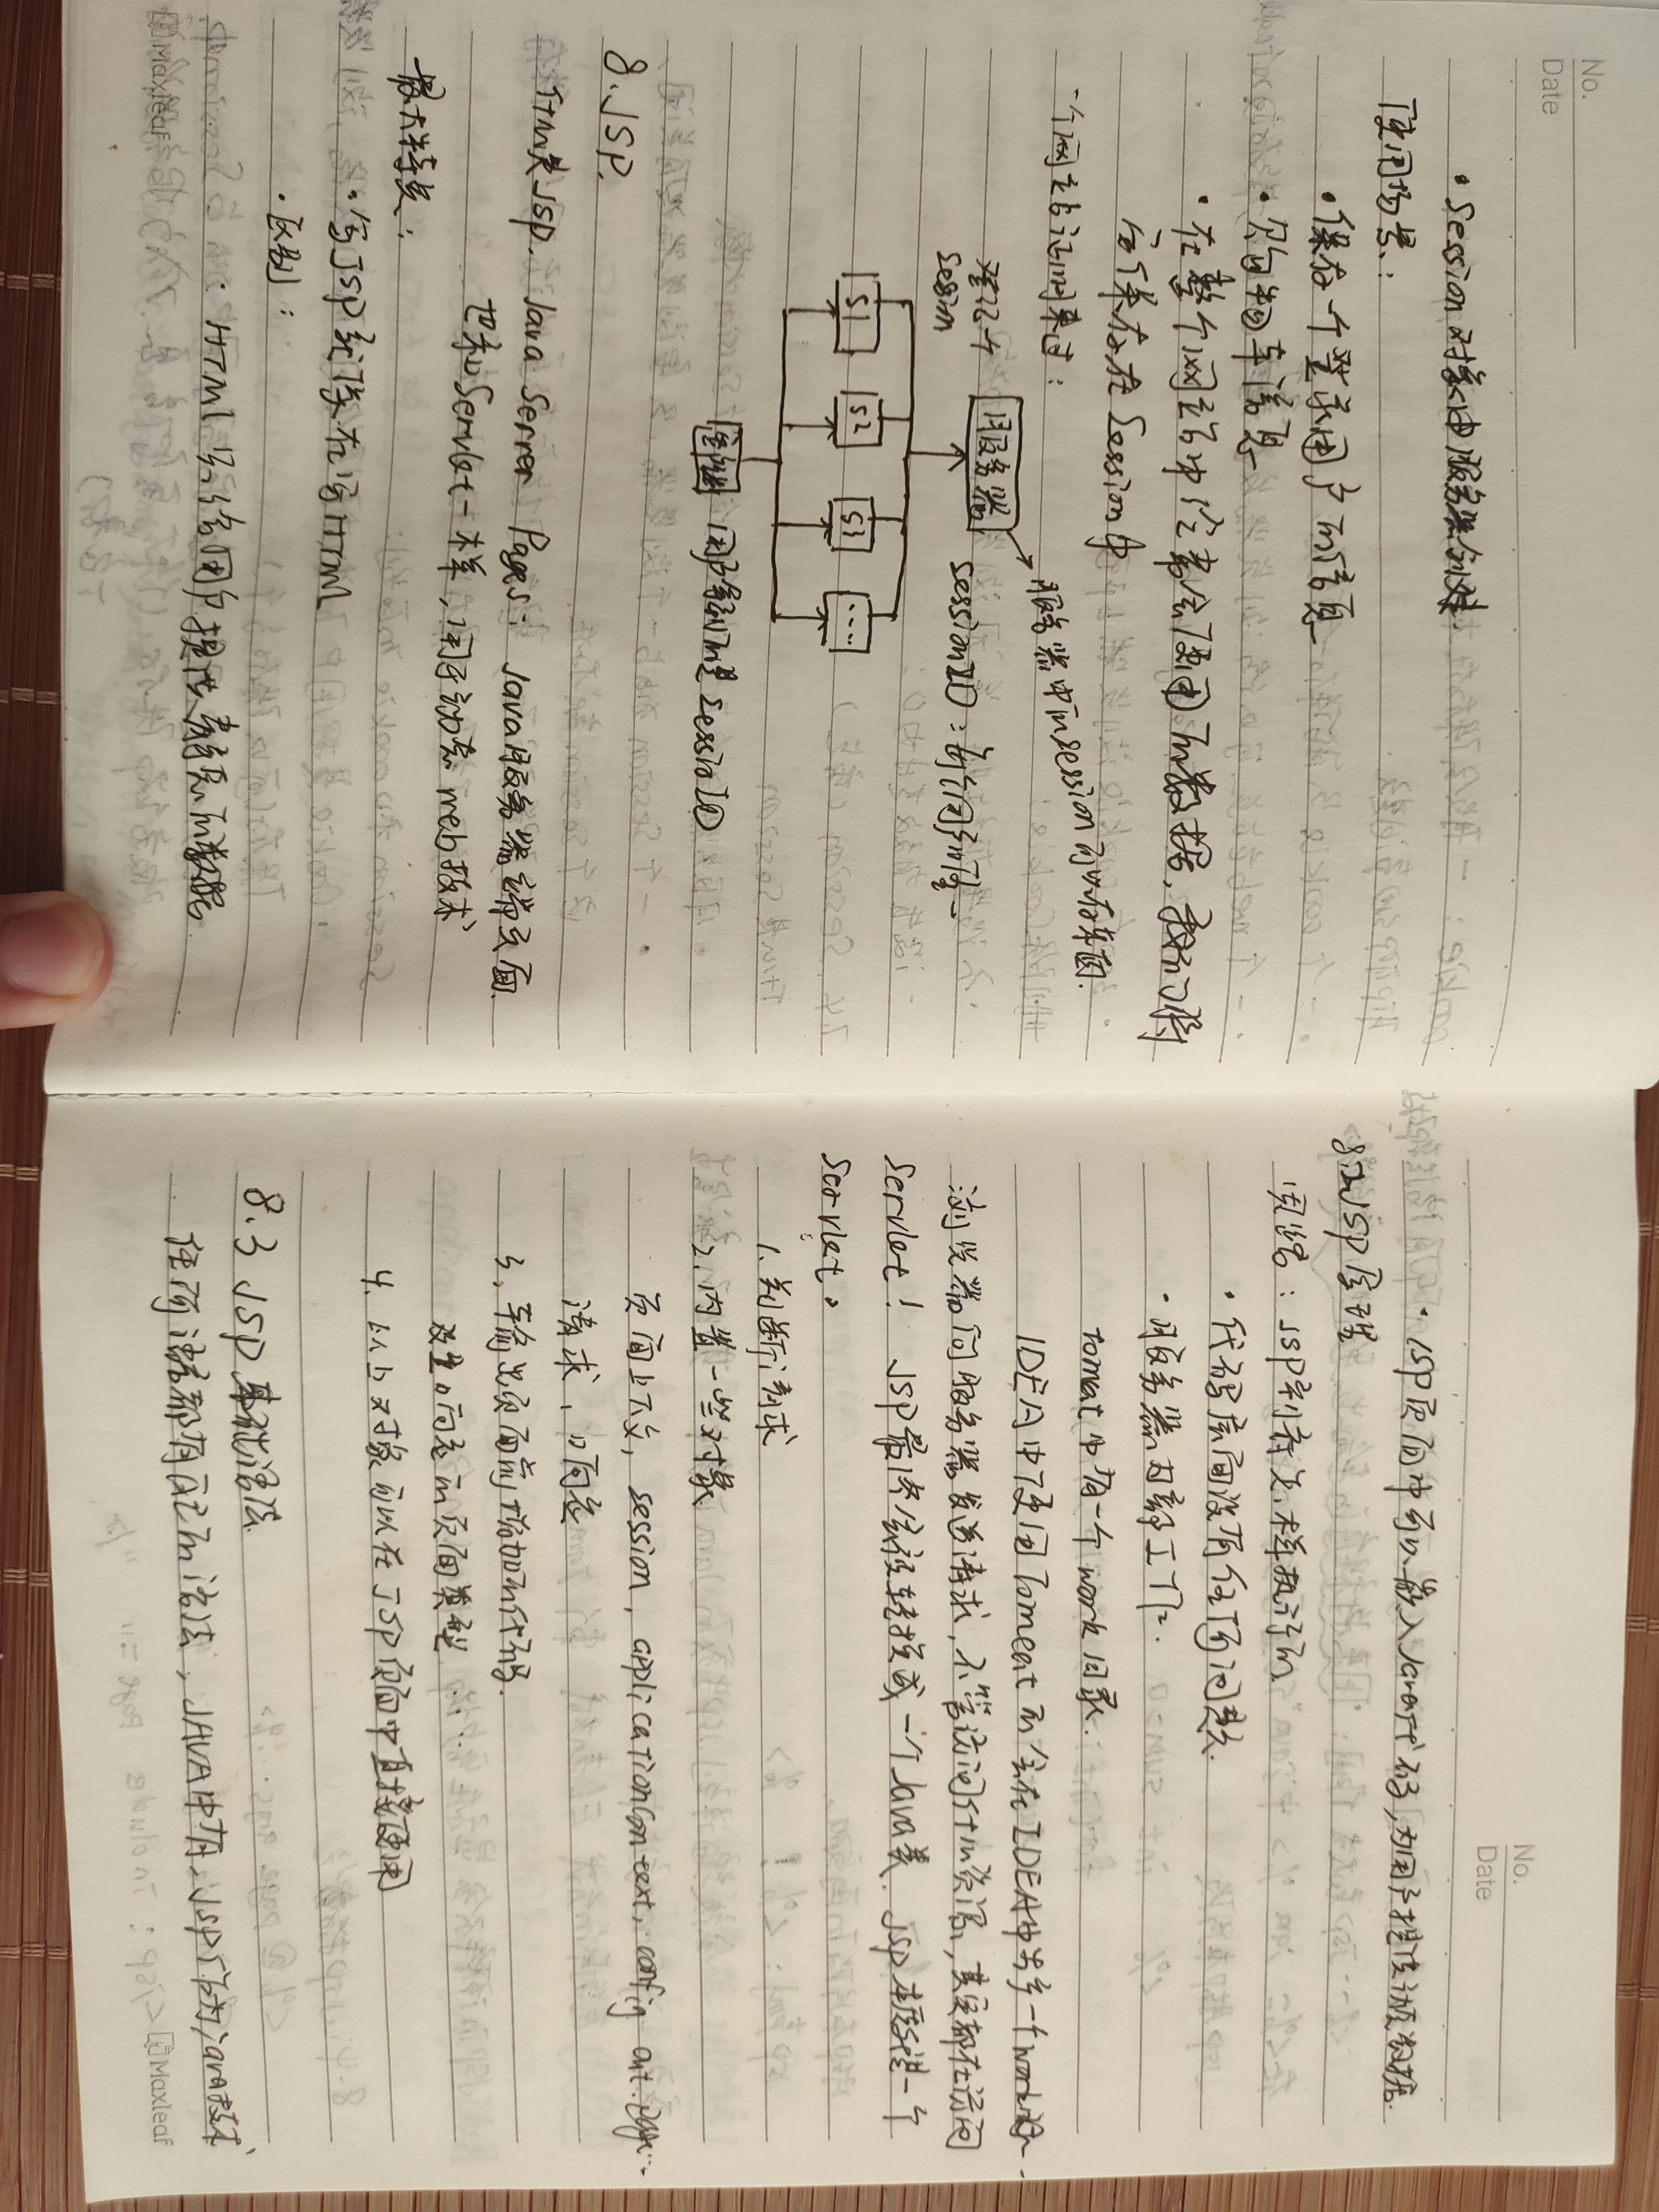 No.
Date
· Session对象由服务器创建
使用场景：
· 保存一个登录用户的信息
· 购物车信息
· 在整个网站中经常会使用的数据，我们将
它保存在Session中
一个网站访问来过：
登记个
session
服务器
服务器中的session可以存东西.
sessionID：每个用户的唯一
S1
S2
S3
...
客户端
用户拿到的是SessionID
8. JSP.
什么是Jsp. Java Server Pages：Java服务器端页面.
也和Servlet一样，用于动态web技术
最大特点：
· 写Jsp就像在写HTML
· 区别：
· HTML只给用户提供静态的数据.
Maxleaf
No.
Date
· JSP页面中可以嵌入Java代码，为用户提供动态数据.
8.2 JSP原理
思路：JSP到底是怎样执行的.
· 代码层面没有任何问题.
· 服务器内部工作.
tomcat中有一个work目录.
IDEA中使用Tomcat的会在IDEA中生产一个work
浏览器向服务器发送请求，不管访问什么资源，其实都在访问
Servlet！ JSP最终会被转换成一个Java类. Jsp本质是一个
Servlet。
1. 判断请求
2. 内置一些对象
页面上下文，session，applicationContext，config，out，page...
请求，响应
3. 输出页面前增加的代码.
设置响应的页面类型
4. 以上对象可以在JSP页面中直接使用
8.3 JSP基础语法
任何语言都有自己的语法，JAVA中有.Jsp作为java技术
Maxleaf